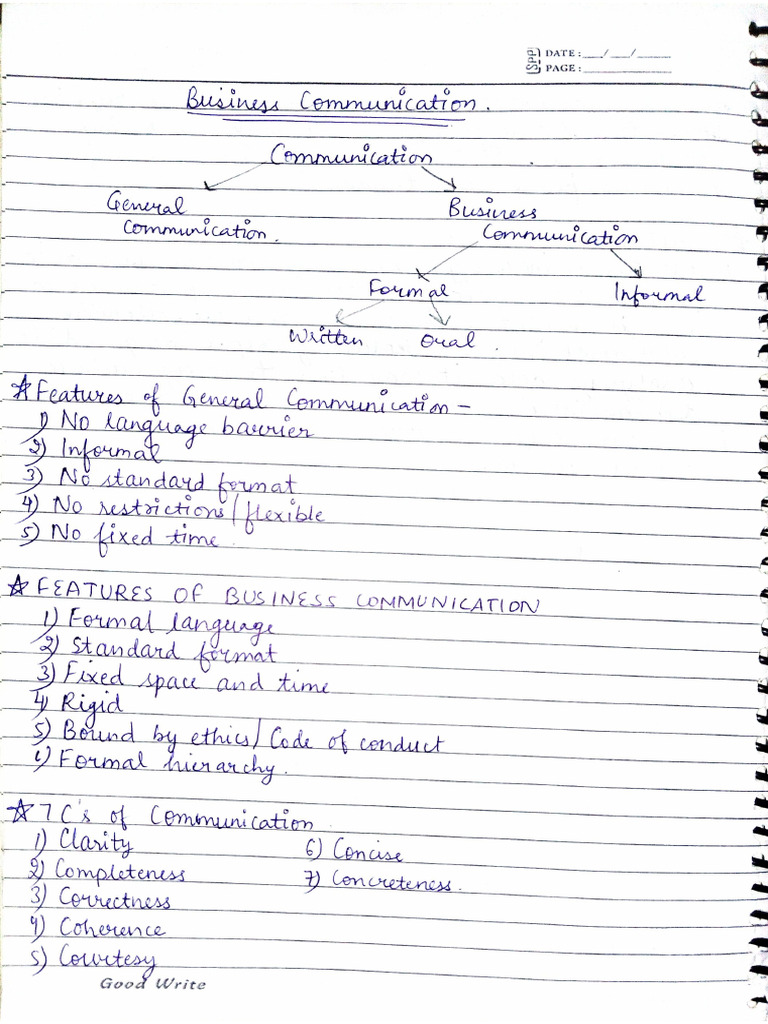 SPP DATE: __/__/____
PAGE: ________
Business Communication.
Communication
General Business
Communication. Communication
Formal Informal
Written Oral.
☆ Features of General Communication –
1) No language barrier
2) Informal
3) No standard format
4) No restrictions/flexible
5) No fixed time.
☆ FEATURES OF BUSINESS COMMUNICATION
1) Formal language
2) Standard format
3) Fixed space and time
4) Rigid
5) Bound by ethics/Code of conduct
6) Formal hierarchy.
☆ 7 C's of Communication
1) Clarity 6) Concise
2) Completeness 7) Concreteness.
3) Correctness
4) Coherence
5) Courtesy
Good Write